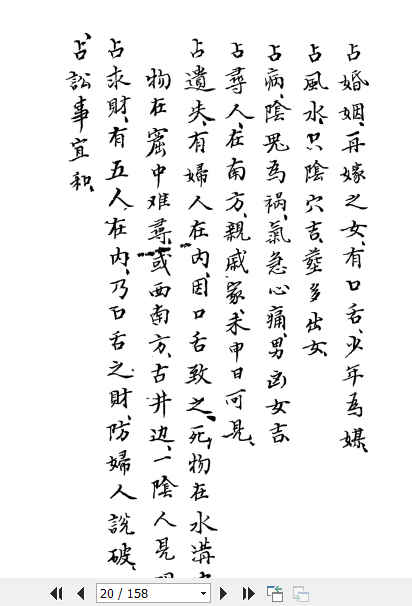 占婚姻、再嫁之女、有口舌、少年爲媒、
占風水、只陰穴吉、葬多出女、
占病、陰鬼爲禍、氣急心痛、男凶女吉
占尋人、在南方、親戚家、未申日可見、
占遺失、有婦人在內、因口舌致之、死物在水溝
物在窟中难尋、或西南方、古井边、一陰人見
占求財、有五人、在內、乃口舌之財、防婦人說破、
占訟事宜和、
20 / 158